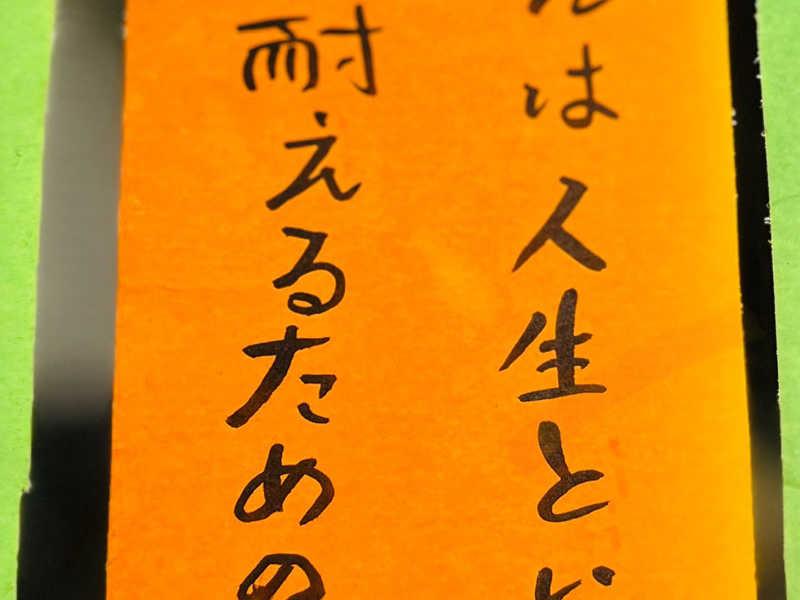 は人生と
耐えるための